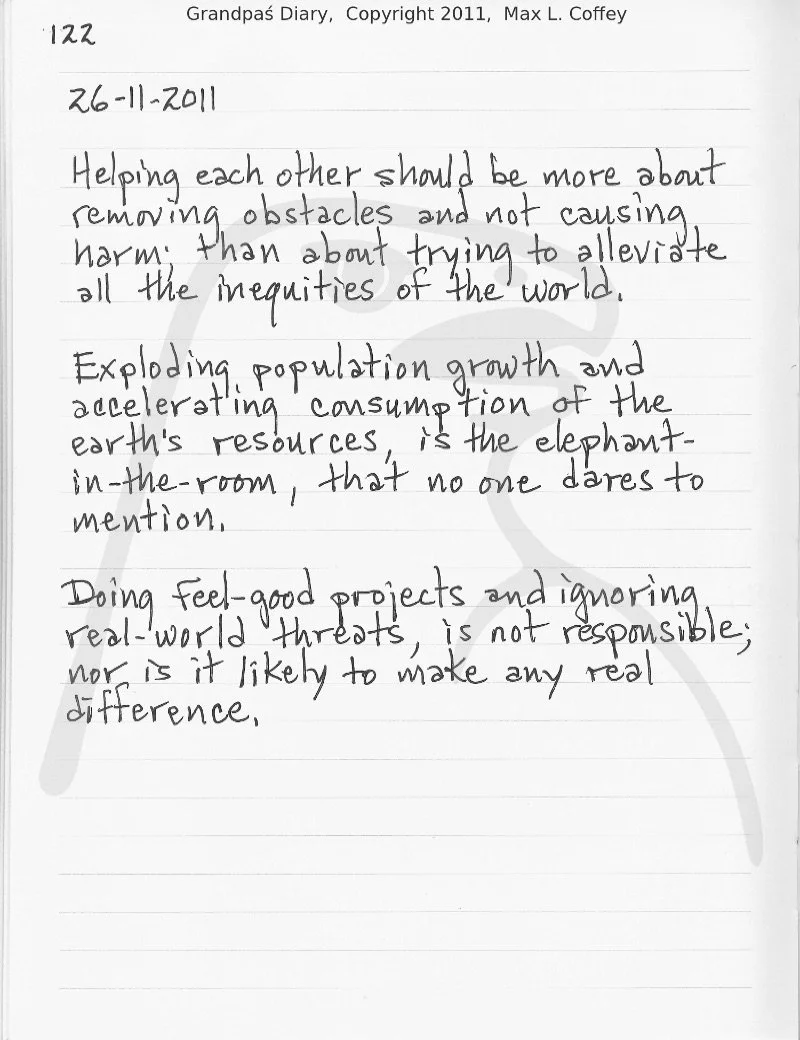 Grandpaś Diary, Copyright 2011, Max L. Coffey
122
26-11-2011
Helping each other should be more about
removing obstacles and not causing
harm; than about trying to alleviate
all the inequities of the world.
Exploding population growth and
accelerating consumption of the
earth's resources, is the elephant-
in-the-room, that no one dares to
mention.
Doing feel-good projects and ignoring
real-world threats, is not responsible;
nor is it likely to make any real
difference.